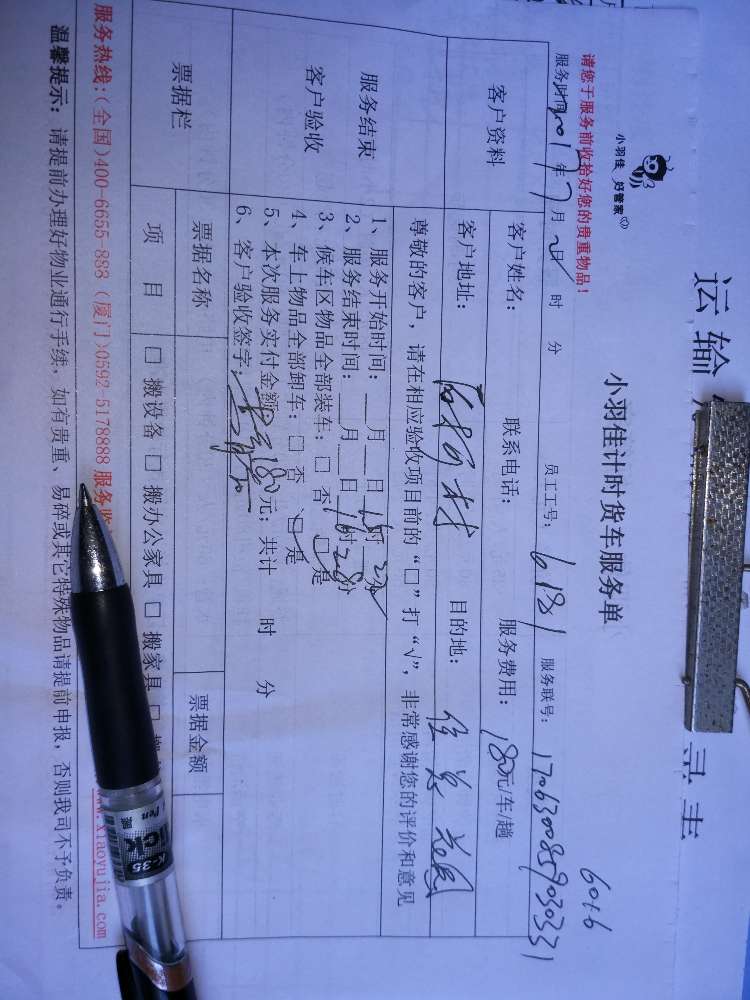 运输
寻主
小羽佳 好管家
小羽佳计时货车服务单
6016
请您于服务前收拾好您的贵重物品!
服务时间: 2017年7月2日 时 分 员工工号: 6181 服务联号: 1706300859030331
客户资料
客户姓名: 联系电话: 服务费用: 180元/车/趟
客户地址: 目的地:
尊敬的客户, 请在相应验收项目前的“□”打“√”, 非常感谢您的评价和意见
服务结束
客户验收
1、服务开始时间: 月 日 时
2、服务结束时间: 月 日 时 分
3、候车区物品全部装车: □ 否 □ 是
4、车上物品全部卸车: □ 否 □ 是
5、本次服务实付金额 180元; 共计 时 分
6、客户验收签字:
票据栏
票据名称 票据金额
项 目 □ 搬设备 □ 搬办公家具 □ 搬家具 □
服务热线:(全国)400-6655-888 (厦门)0592-5178888 服务 www.xiaoyujia.com
温馨提示: 请提前办理好物业通行手续, 如有贵重、易碎或其它特殊物品请提前申报, 否则我司不予负责。
K-35
Pen